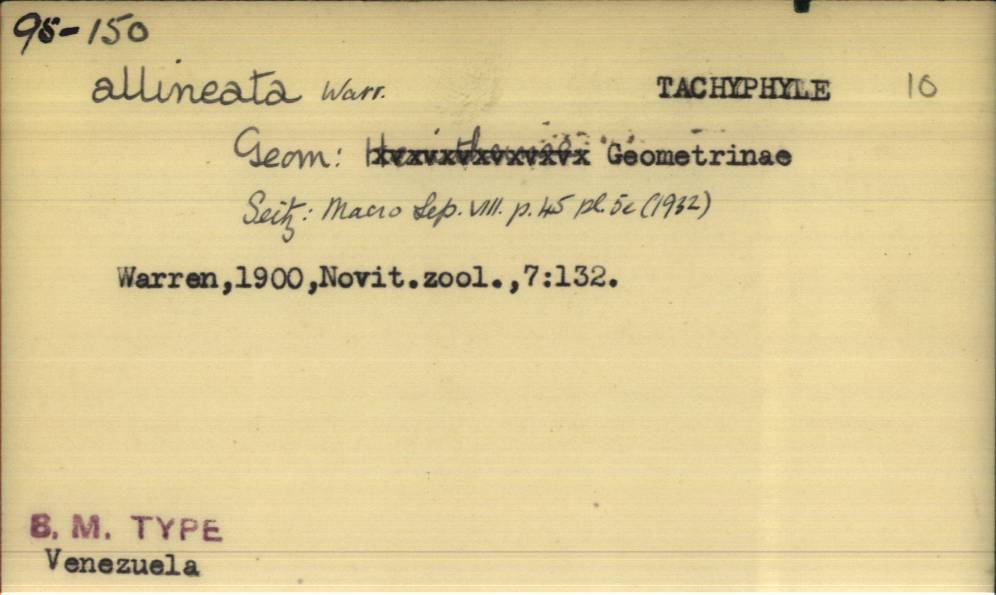 95-150
allineata Warr. TACHYPHYLE 10
Geom: Geometrinae
Seitz: Macro Lep. VIII. p.45 pl.5c (1932)
Warren,1900,Novit.zool.,7:132.
B. M. TYPE
Venezuela